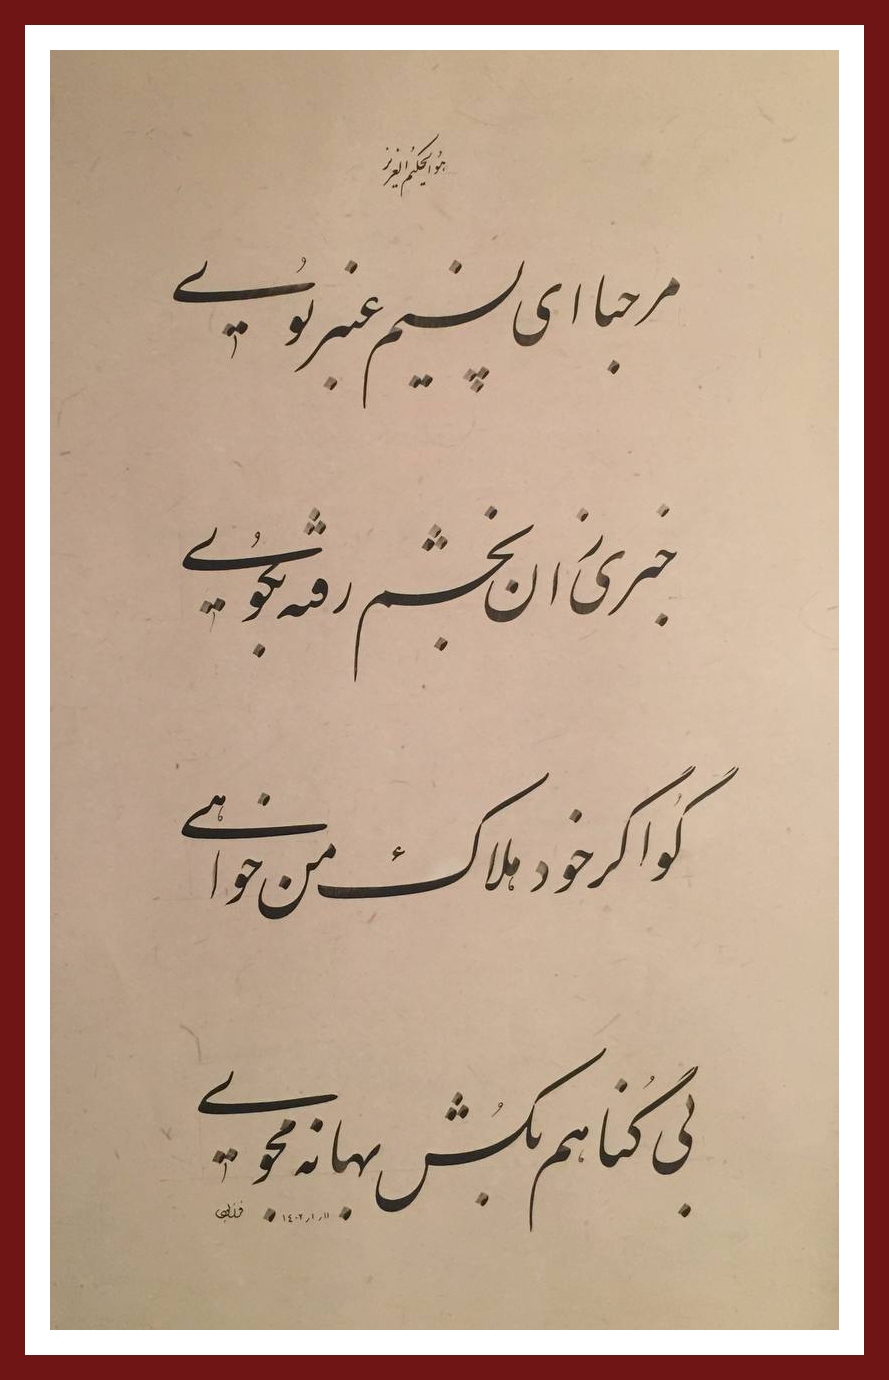 هُوالحکیمُ العزیز
مرحبا ای نسیم عنبر بُوی
خبری زان بخشم رفته بگُوی
گُو اگر خود هلاک من خواهی
بی گُناهم بکُش بهانه مجوی
۱۴۰۲٫۱٫۱۱